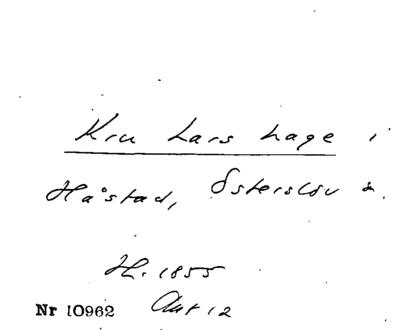 Kru Lars Hage i
Håstad, Österslöv s.
H. 1855
Nr 10962 Aut 12